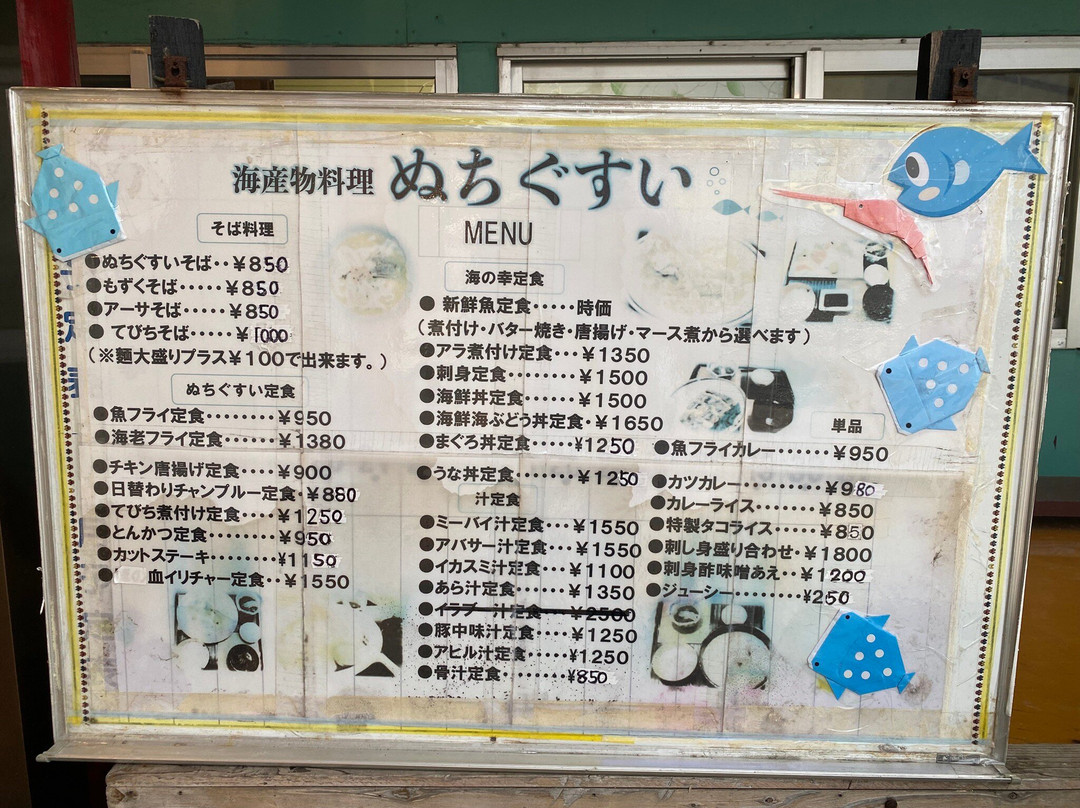 海産物料理 ぬちぐすい
MENU
そば料理
●ぬちぐすいそば‥￥850
●もずくそば‥‥‥￥850
●アーサそば‥‥‥￥850
●てびちそば‥‥‥￥1000
(※麺大盛りプラス￥100で出来ます。)
ぬちぐすい定食
●魚フライ定食‥‥‥‥￥950
●海老フライ定食‥‥‥￥1380
●チキン唐揚げ定食‥‥￥900
●日替わりチャンプルー定食・￥880
●てびち煮付け定食‥‥￥1250
●とんかつ定食‥‥‥‥￥950
●カットステーキ‥‥‥￥1150
●血イリチャー定食‥￥1550
海の幸定食
●新鮮魚定食‥‥‥時価
(煮付け・バター焼き・唐揚げ・マース煮から選べます)
●アラ煮付け定食‥・￥1350
●刺身定食‥‥‥‥￥1500
●海鮮丼定食‥‥‥￥1500
●海鮮海ぶどう丼定食・￥1650
●まぐろ丼定食‥‥‥￥1250
●うな丼定食‥‥‥‥￥1250
汁定食
●ミーバイ汁定食‥・￥1550
●アバサー汁定食‥・￥1550
●イカスミ汁定食‥・￥1100
●あら汁定食‥‥‥￥1350
●イラブー汁定食‥・￥2500
●豚中味汁定食‥‥￥1250
●アヒル汁定食‥‥・￥1250
●骨汁定食‥‥‥・￥850
単品
●魚フライカレー‥‥‥￥950
●カツカレー‥‥‥‥￥980
●カレーライス‥‥‥・￥850
●特製タコライス‥‥‥￥850
●刺し身盛り合わせ・￥1800
●刺身酢味噌あえ‥￥1200
●ジューシー‥‥‥‥￥250